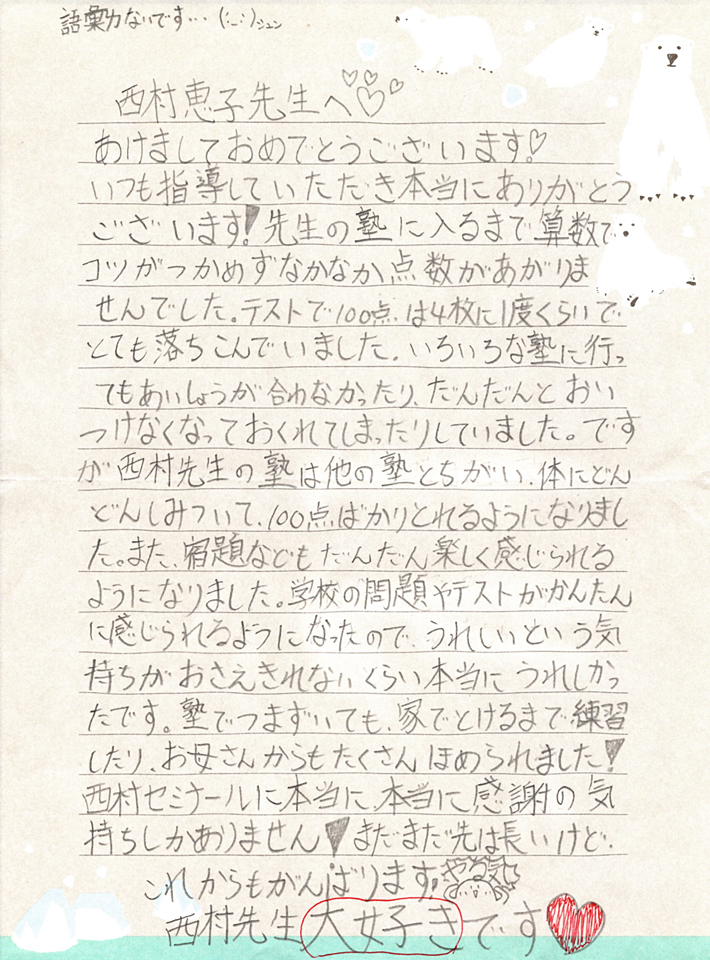 語彙力ないです…(._.)シュン
西村恵子先生へ♡♡♡♡
あけましておめでとうございます!♡
いつも指導していただき本当にありがとう
ございます!先生の塾に入るまで算数で
コツがつかめずなかなか点数があがりま
せんでした。テストで100点は4枚に1度くらいで
とても落ちこんでいました。いろいろな塾に行っ
てもあいしょうが合わなかったり、だんだんとおい
つけなくなっておくれてしまったりしていました。です
が西村先生の塾は他の塾とちがい、体にどん
どんしみついて、100点ばかりとれるようになりまし
た。また、宿題などもだんだん楽しく感じられる
ようになりました。学校の問題やテストがかんたん
に感じられるようになったので、うれしいという気
持ちがおさえきれないくらい本当にうれしかっ
たです。塾でつまずいても、家でとけるまで練習
したり、お母さんからもたくさんほめられました!
西村セミナールに本当に、本当に感謝の気
持ちしかありません!まだまだ先は長いけど、
これからもがんばります!やる気
西村先生大好きです♥